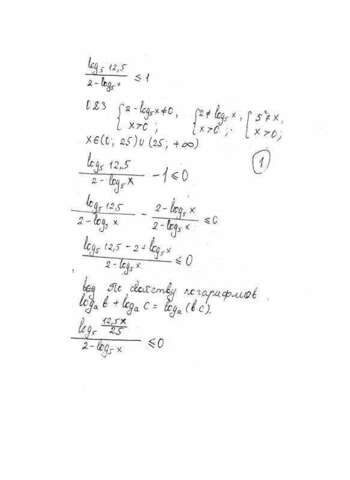 log₅ 12,5 / 2-log₅ x ≤ 1
ОДЗ { 2-log₅x≠0, x>0; { 2≠log₅x, x>0; { 5²≠x, x>0;
x∈(0; 25)∪(25; +∞)
1
log₅ 12,5 / 2-log₅x - 1 ≤ 0
log₅ 12,5 / 2-log₅x - 2-log₅x / 2-log₅x ≤ 0
log₅ 12,5 - 2 + log₅x / 2-log₅x ≤ 0
По свойству логарифмов
logₐ b + logₐ c = logₐ (bc).
log₅ 12,5x/25 / 2-log₅x ≤ 0